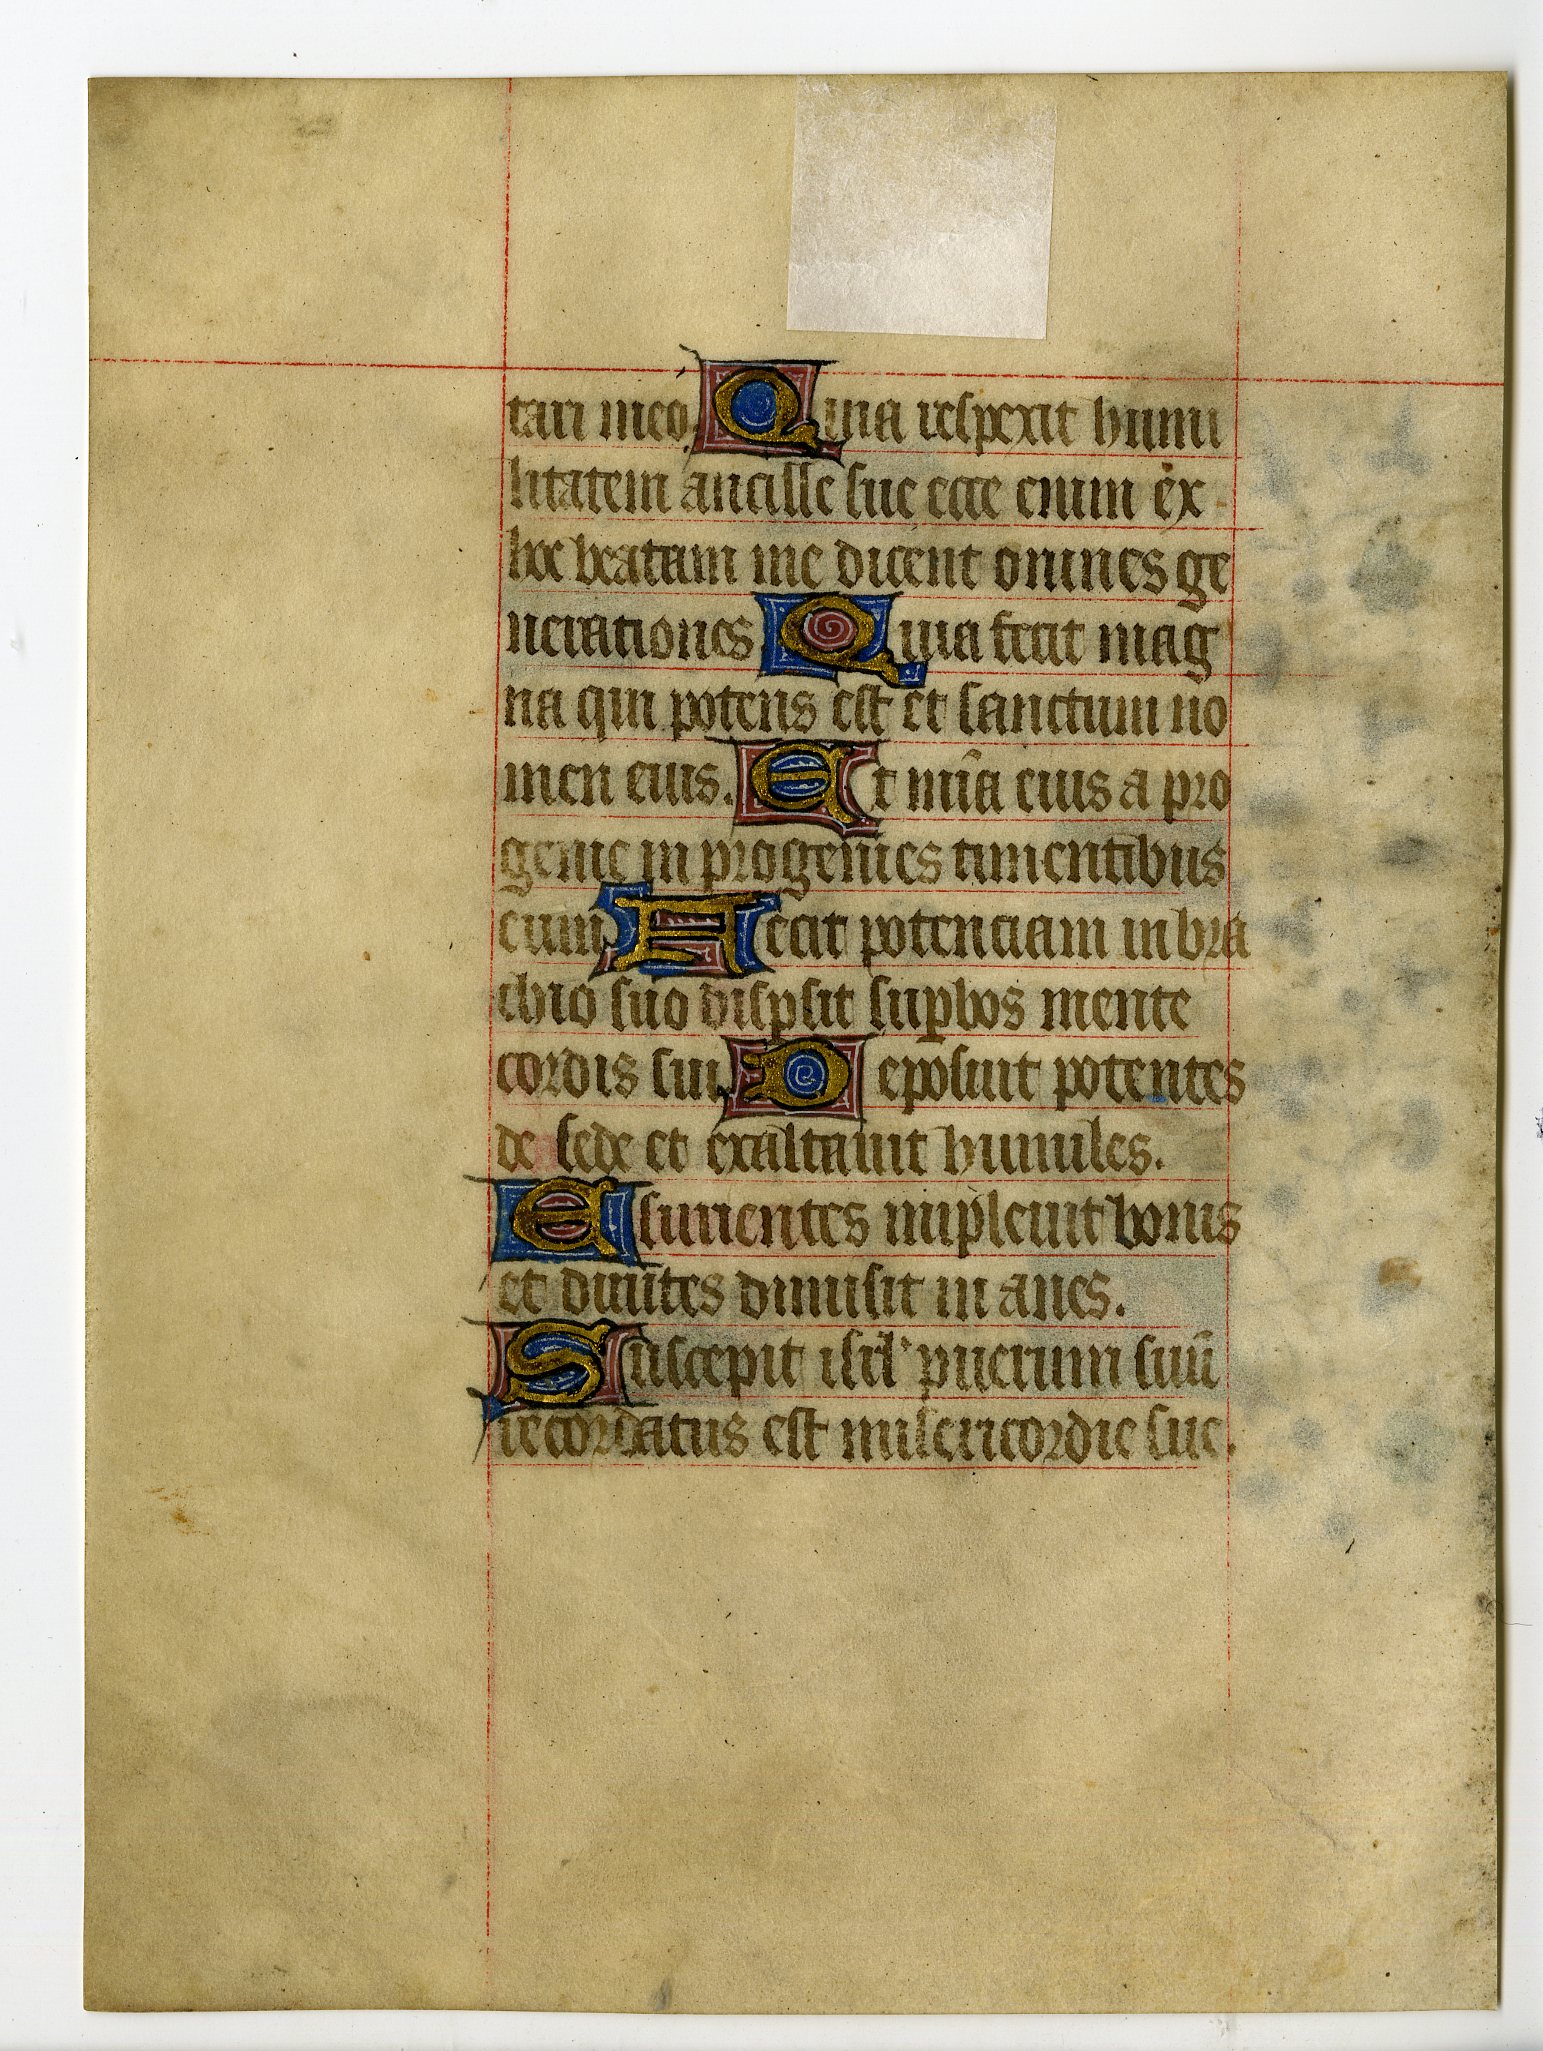 tari meo. Quia respexit humi
litatem ancille sue ecce enim ex
hoc beatam me dicent omnes ge
nerationes Quia fecit mag
na qui potens est et sanctum no
men eius. Et mīa eius a pro
genie in progenies timentibus
eum Fecit potenciam in bra
chio suo disꝑsit suꝑbos mente
cordis sui. Deposuit potentes
de sede et exaltauit humiles.
Esurientes impleuit bonis
et diuites dimisit in anes.
Suscepit isrl' puerum suū
recordatus est misericordie sue.